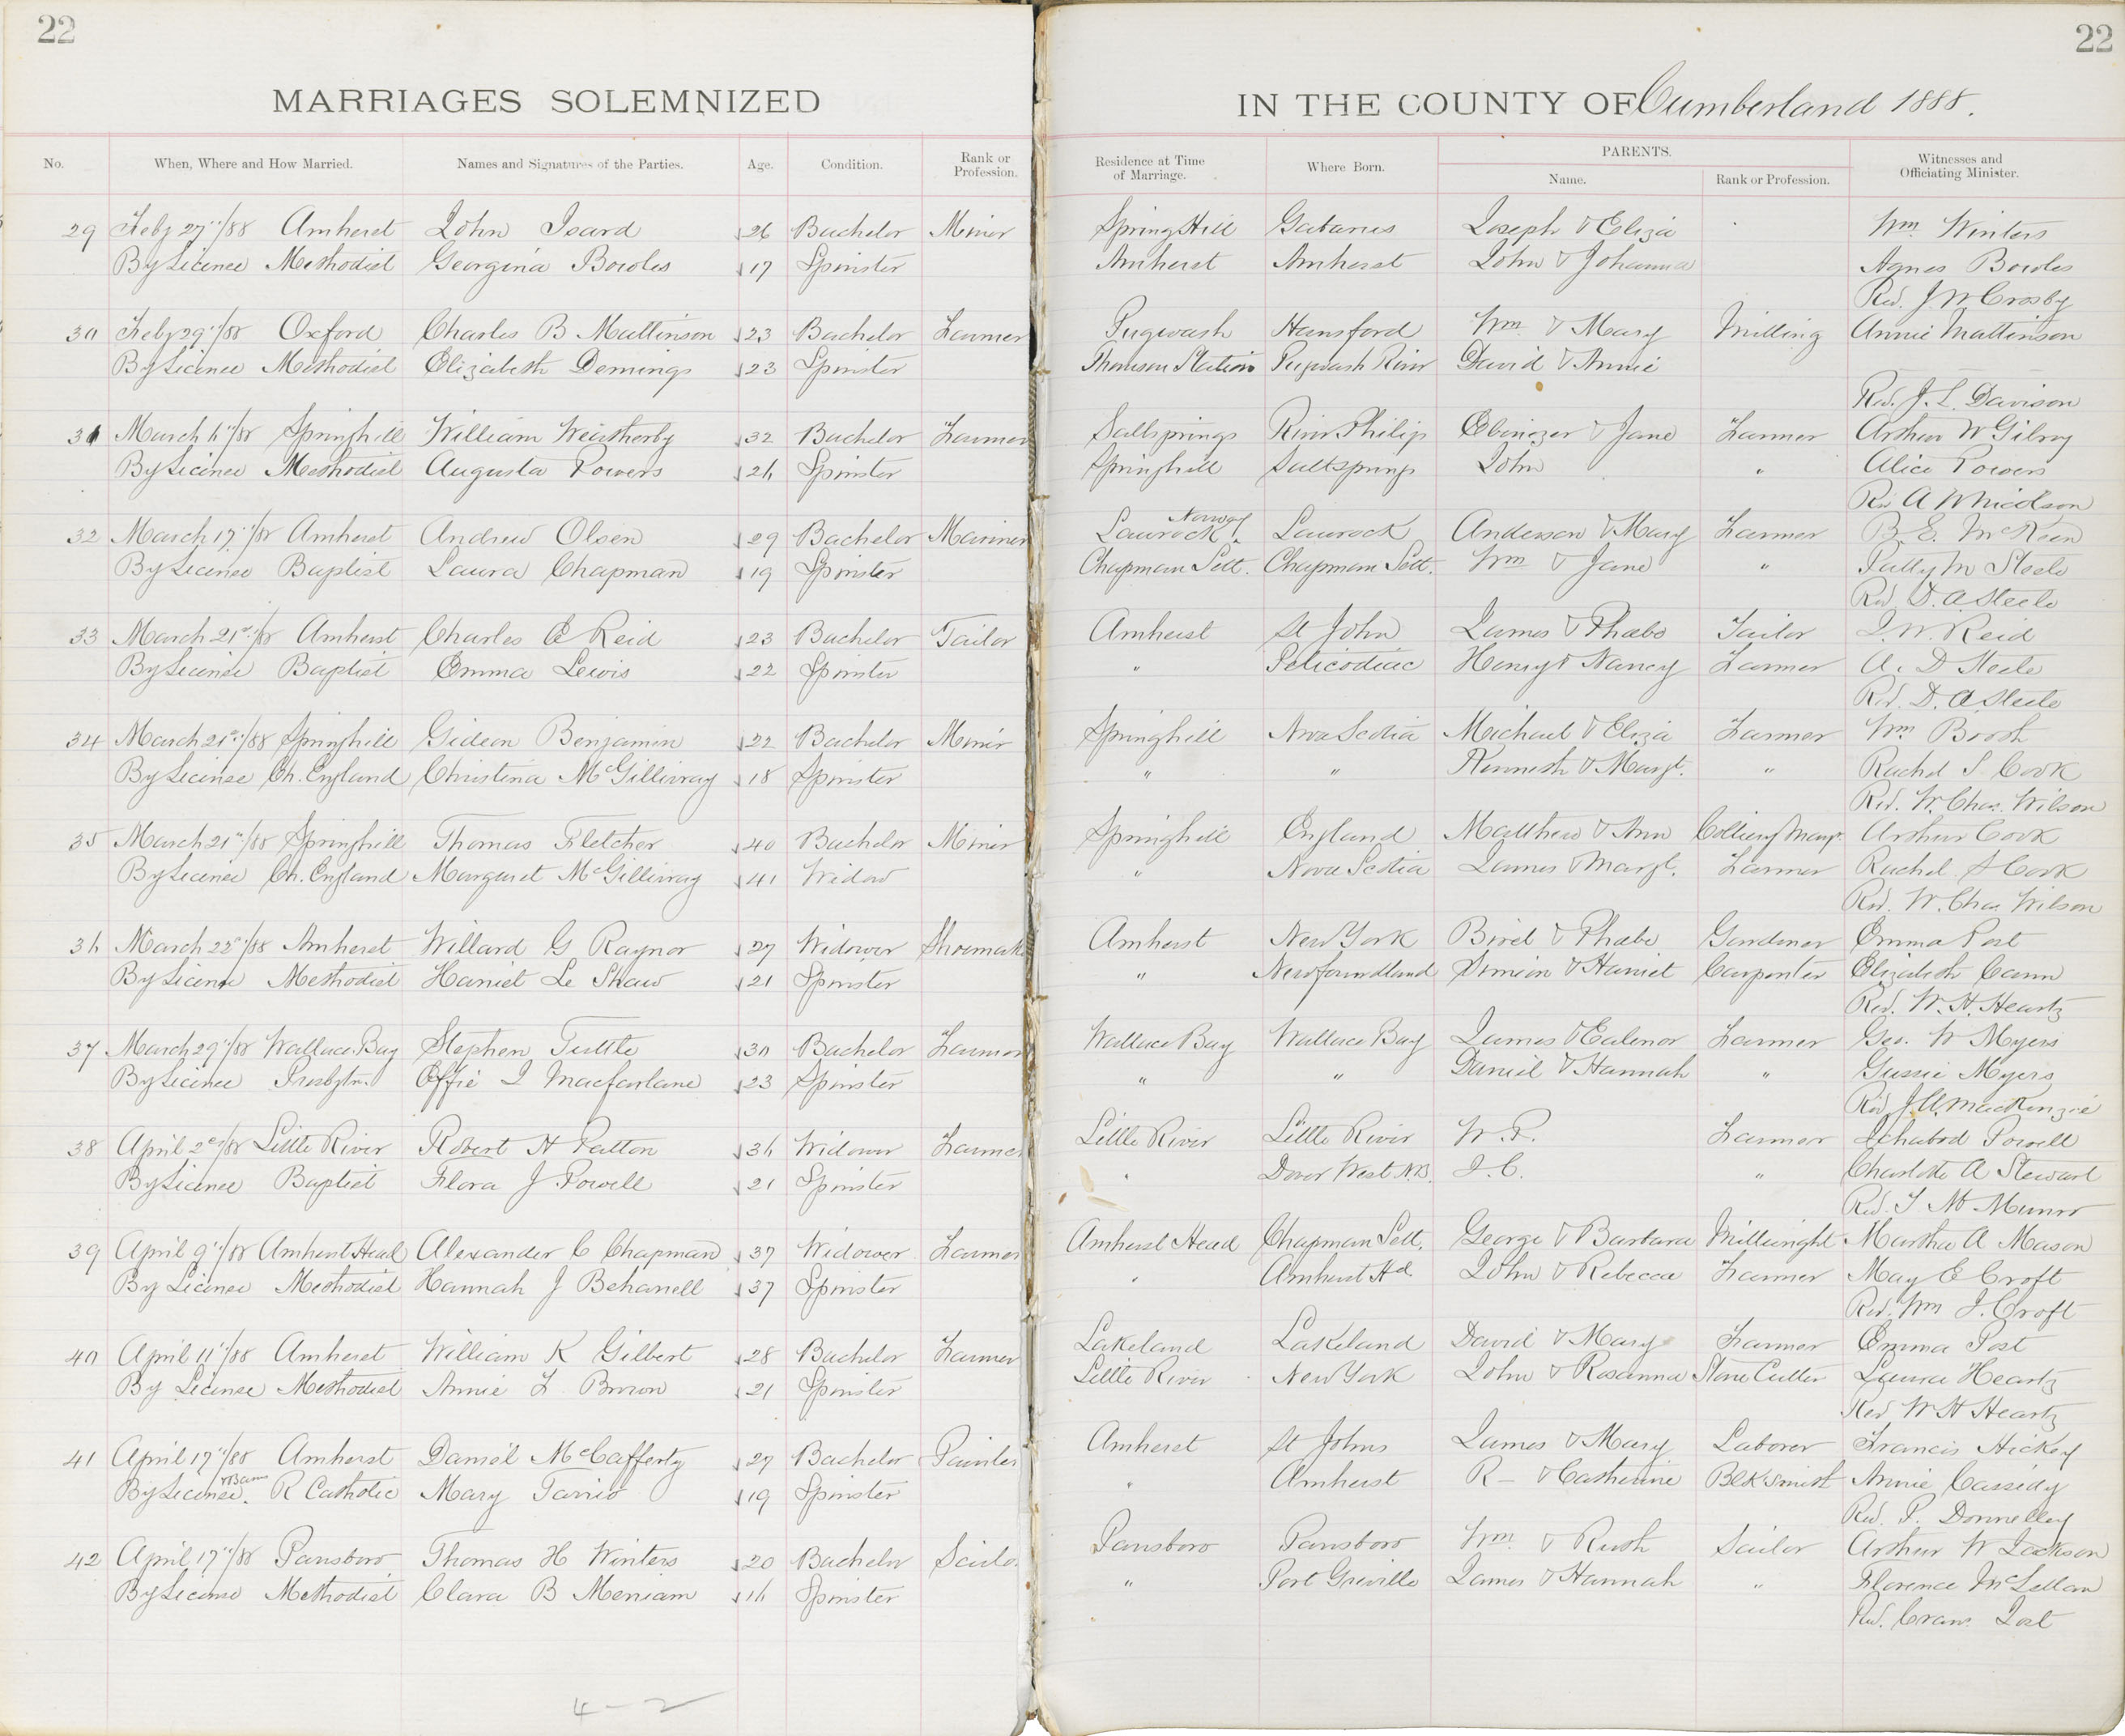 22
22
MARRIAGES SOLEMNIZED IN THE COUNTY OF Cumberland 1888.
No. When, Where and How Married. Names and Signatures of the Parties. Age. Condition. Rank or Profession. Residence at Time of Marriage. Where Born. PARENTS. Name. Rank or Profession. Witnesses and Officiating Minister.
29 Feby 27"/88 Amherst John Isard 26 Bachelor Miner SpringHill Gabarus Joseph & Eliza Wm Winters
By Licence Methodist Georgina Bowles 17 Spinster Amherst Amherst John & Johanna Agnes Bowles
Rev. J W Crosby
30 Feby 29"/88 Oxford Charles B Mattinson 23 Bachelor Farmer Pugwash Hansford Wm & Mary Milling Annie Mattinson
By Licence Methodist Elizabeth Demings 23 Spinster Thomson Station Pugwash River David & Annie
Rev. J. L. Davison
31 March 6"/88 Springhill William Weatherby 32 Bachelor Farmer Saltsprings River Philip Ebenezer & Jane Farmer Arthur W Gilroy
By Licence Methodist Augusta Powers 26 Spinster Springhill Saltsprings John " Alice Powers
Rev A W Nicolson
32 March 17"/88 Amherst Andrew Olsen 29 Bachelor Mariner Laurock Norway Laurock Anderson & Mary Farmer B. E. McKeen
By Licence Baptist Laura Chapman 19 Spinster Chapman Sett. Chapman Sett. Wm & Jane " M Steele
Rev D. A. Steele
33 March 21st/88 Amherst Charles E Reid 23 Bachelor Tailor Amherst St John James & Phæbe Tailor J. W. Reid
By Licence Baptist Emma Lewis 22 Spinster " Peticodiac Henry & Nancy Farmer A. D Steele
Rev. D. A. Steele
34 March 21st/88 Springhill Gideon Benjamin 22 Bachelor Miner Springhill Nova Scotia Michael & Eliza Farmer Wm Booth
By License Ch. England Christina McGillivray 18 Spinster " " Kenneth & Margt. " Rachel S. Cook
Rev. W. Chas. Wilson
35 March 21st/88 Springhill Thomas Fletcher 40 Bachelor Miner Springhill England Matthew & Ann Colliery Mangr. Arthur Cook
By Licence Ch. England Margaret McGillivray 41 Widow " Nova Scotia James & Margt. Farmer Rachel S Cook
Rev. W. Chas. Wilson
36 March 22"/88 Amherst Willard G Raynor 27 Widower Shoemak Amherst New York Bird & Phæbe Gardner Emma Post
By Licence Methodist Harriet Le Shaw 21 Spinster " Newfoundland Simeon & Harriet Carpenter Elizabeth Cann
Rev. W. H. Heartz
37 March 29"/88 Wallace Bay Stephen Tuttle 30 Bachelor Farmer Wallace Bay Wallace Bay James & Ealenor Farmer Geo. W Myers
By Licence Presbytn. Effie J Macfarlane 23 Spinster " " Daniel & Hannah " Gussie Myers
Rev. J. A. MacKenzie
38 April 2"/88 Little River Robert H Patton 36 Widower Farmer Little River Little River W. P. Farmer Ichabod Powell
By Licence Baptist Flora J. Powell 21 Spinster " Dover West N.B. I. C. " Charlotte A Stewart
Rev. Munro
39 April 9"/88 Amherst Head Alexander C Chapman 37 Widower Farmer Amherst Head Chapman Sett. George & Barbara Millwright Martha A Mason
By Licence Methodist Hannah J Behanell 37 Spinster " Amherst Hd. John & Rebecca Farmer May E Croft
Rev. Wm J. Croft
40 April 11"/88 Amherst William K Gilbert 28 Bachelor Farmer Lakeland Lakeland David & Mary Farmer Emma Post
By License Methodist Annie L Brown 21 Spinster Little River New York John & Rosanna Stone Cutter Laura Heartz
Rev W H Heartz
41 April 17"/88 Amherst Daniel McCafferty 27 Bachelor Painter Amherst St Johns James & Mary Laborer Francis Hickey
By Licence & Bans. R Catholic Mary Tarrio 19 Spinster " Amherst R— & Catherine Blk Smith Annie Cassidy
Rev. P. Donnelley
42 April 17"/88 Parrsboro Thomas H Winters 20 Bachelor Sailo Parrsboro Parrsboro Wm & Ruth Sailor Arthur W Jackson
By License Methodist Clara B Merriam 16 Spinster " Port Greville James & Hannah " Florence McLellan
Rev. Cranw. Jost
4 - 2